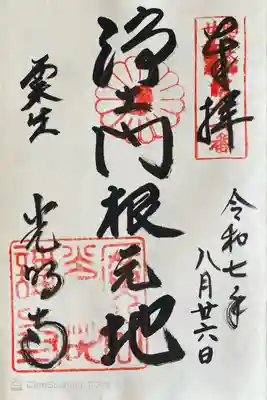 奉拝
令和七年
八月廿六日
浄土門根元地
粟生 光明寺
CamScanner